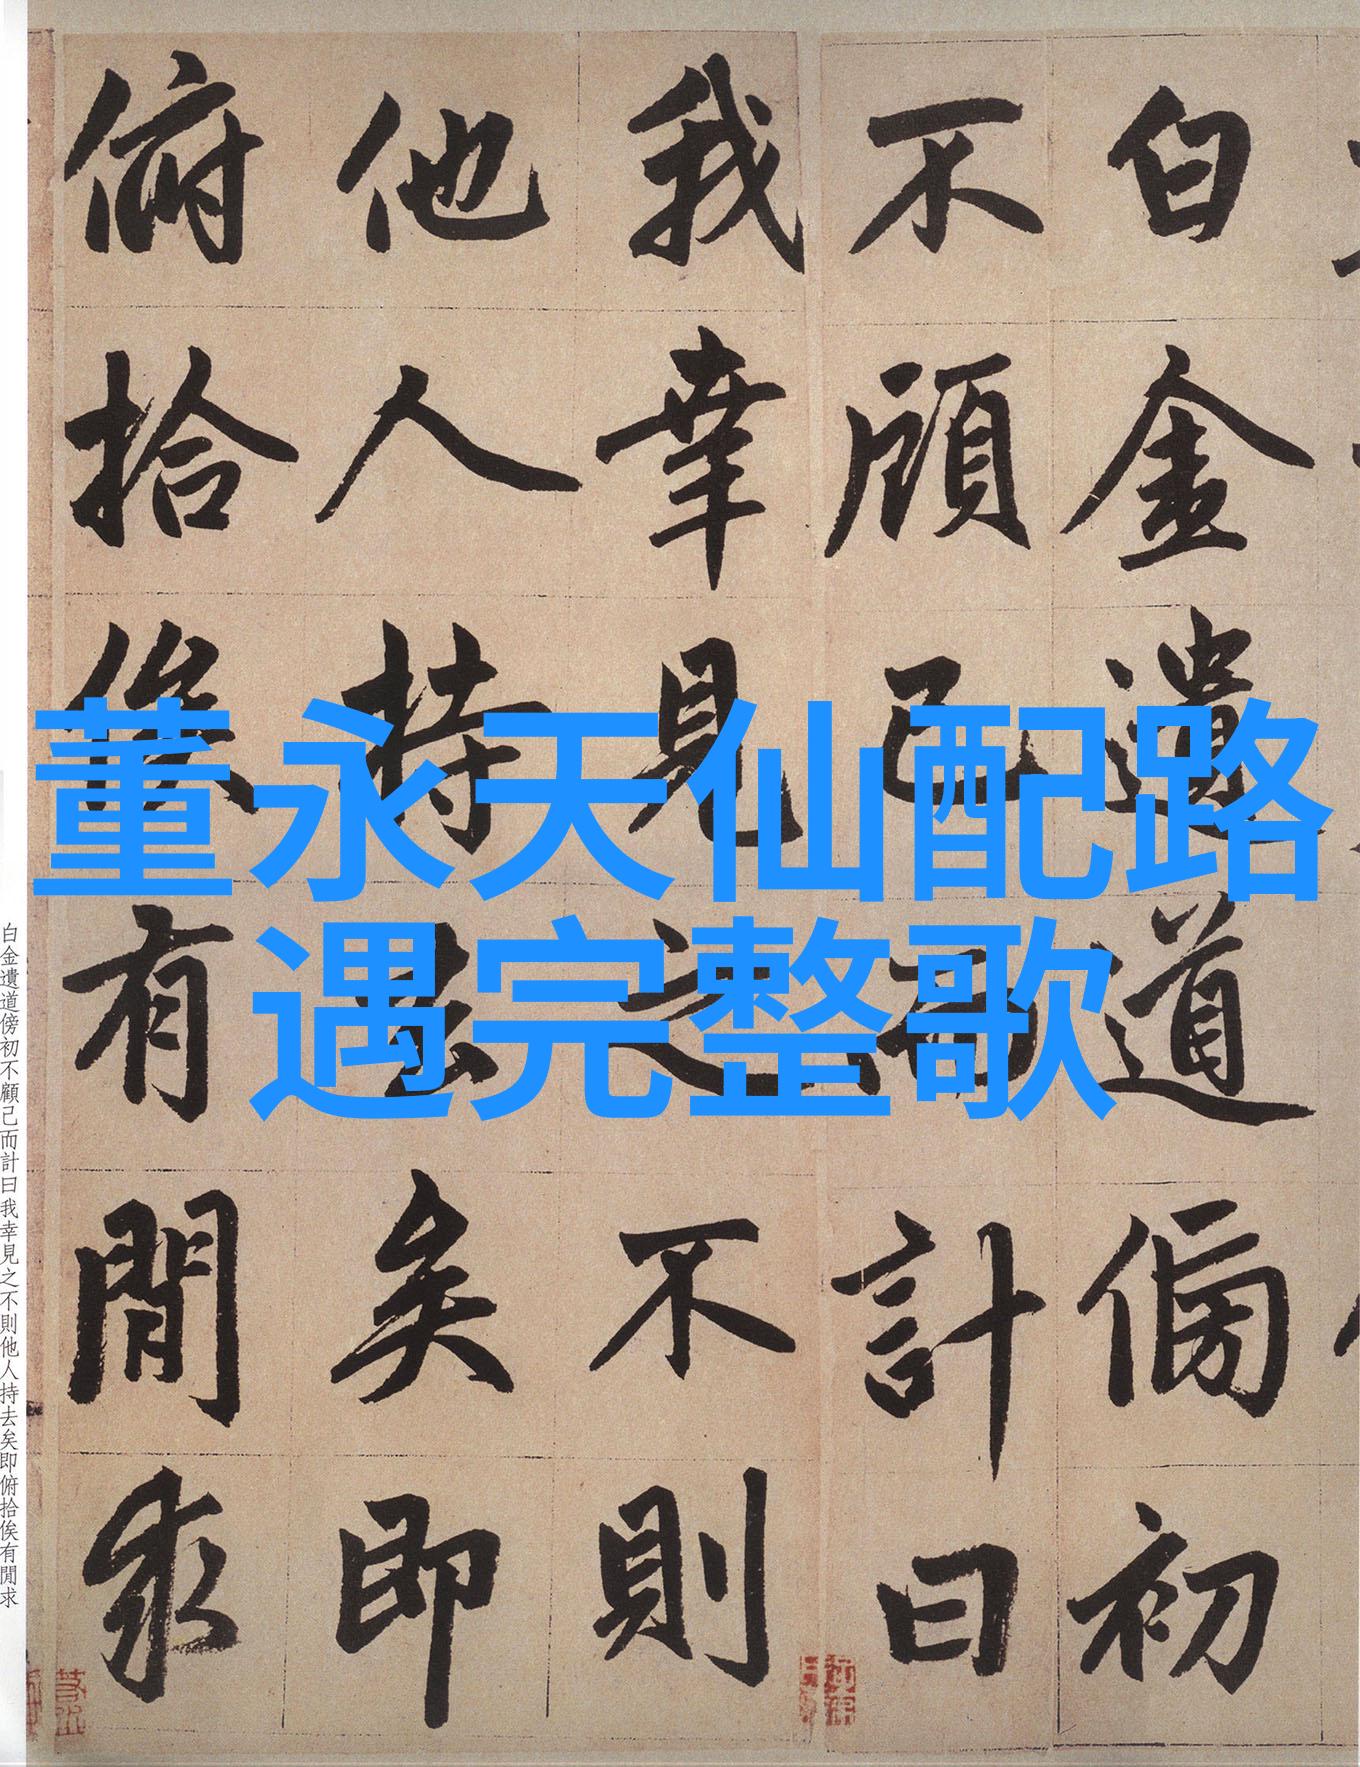 董永天仙配路
遇完整歌
白金遺道傍初
不顧己而計曰
我幸見之不則
他人持去矣即
俯拾俟有閒求
白金遺道傍初不顧己而計曰我幸見之不則他人持去矣即俯拾俟有閒求